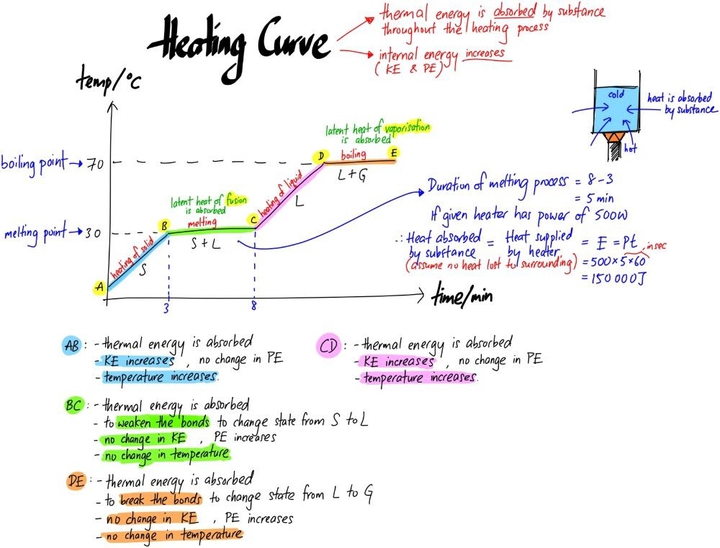 Heating Curve
thermal energy is absorbed by substance
throughout the heating process
internal energy increases
(KE & PE)
temp/°C
boiling point → 70
melting point → 30
A
heating of solid
S
B
latent heat of fusion
is absorbed
melting
S + L
C
heating of liquid
L
D
latent heat of vaporisation
is absorbed
boiling
L + G
E
3
8
time/min
cold
heat is absorbed
by substance
hot
Duration of melting process = 8 - 3
= 5 min
If given heater has power of 500W
∴ Heat absorbed by substance = Heat supplied by heater = E = Pt, in sec
(assume no heat lost to surrounding) = 500×5×60
= 150 000J
AB : - thermal energy is absorbed
- KE increases , no change in PE
- temperature increases.
CD : - thermal energy is absorbed
- KE increases , no change in PE
- temperature increases.
BC : - thermal energy is absorbed
- to weaken the bonds to change state from S to L
- no change in KE , PE increases
- no change in temperature
DE : - thermal energy is absorbed
- to break the bonds to change state from L to G
- no change in KE , PE increases
- no change in temperature